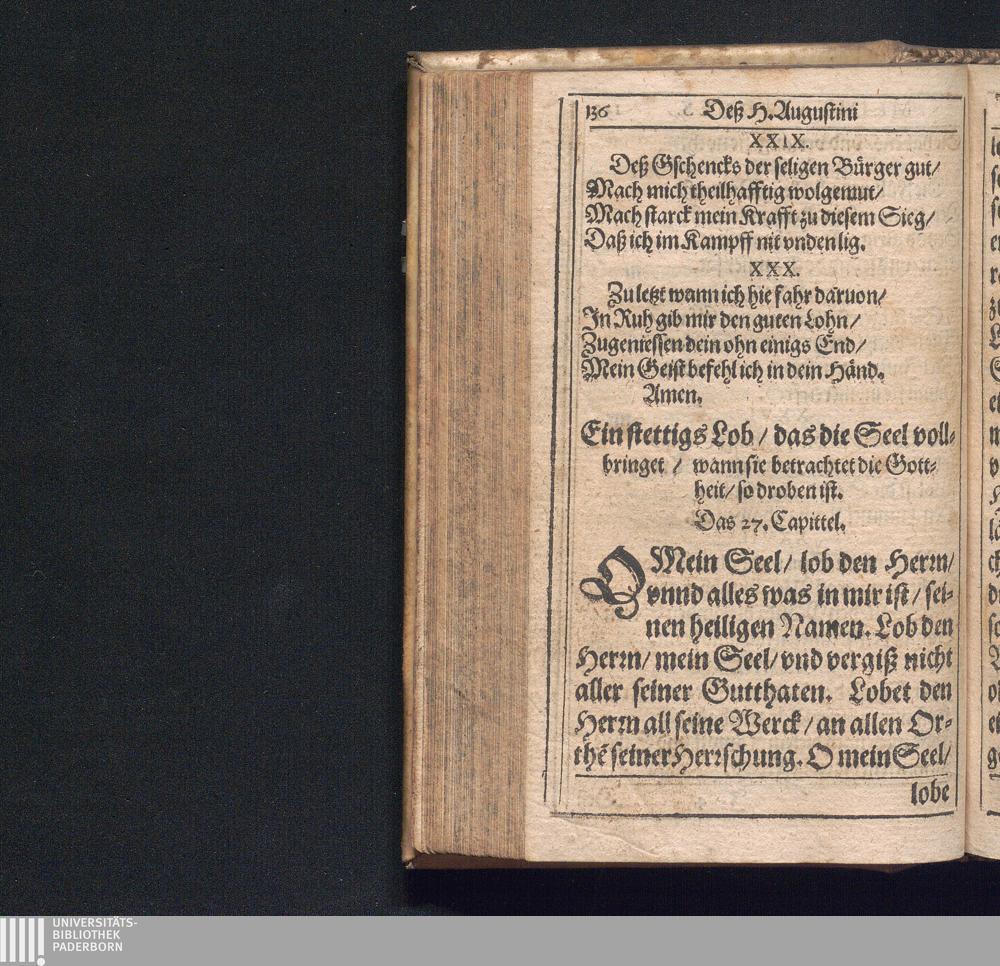 136 Deß H. Augustini
XXIX.
Deß Gschencks der seligen Bürger gut/
Mach mich theilhafftig wolgemut/
Mach starck mein Krafft zu diesem Sieg/
Daß ich im Kampff nit vnden lig.
XXX.
Zu letzt wann ich hie fahr daruon/
In Ruh gib mir den guten Lohn/
Zugeniessen dein ohn einigs End/
Mein Geist befehl ich in dein Händ.
Amen.
Ein stettigs Lob/ das die Seel voll-
bringet / wann sie betrachtet die Gott-
heit/ so droben ist.
Das 27. Capittel.
O Mein Seel/ lob den Herrn/
vnnd alles was in mir ist/ sei-
nen heiligen Namen. Lob den
Herrn/ mein Seel/ vnd vergiß nicht
aller seiner Gutthaten. Lobet den
Herrn all seine Werck/ an allen Or-
thẽ seiner Herrschung. O mein Seel/
lobe
UNIVERSITÄTS-
BIBLIOTHEK
PADERBORN